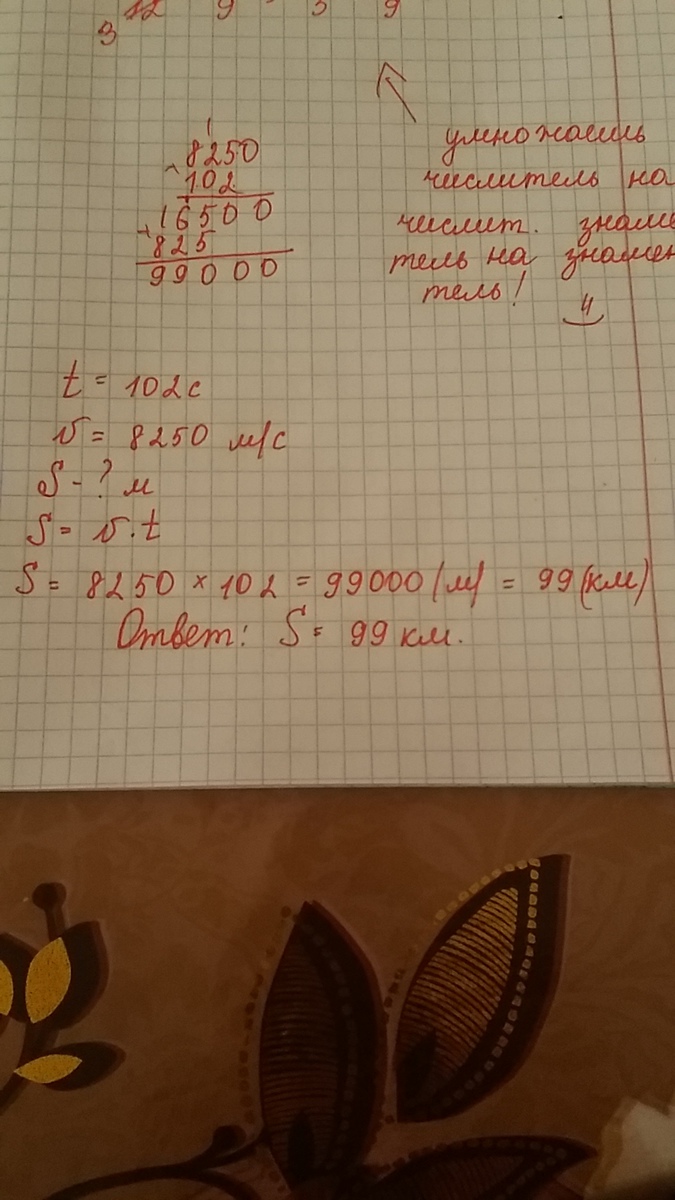 12 9 3 9
3
1
8250
× 102
16500
+ 825
99000
умножаешь
числитель на
числит. знаме
тель на знамен
тель!
t = 102 с
v = 8250 м/с
S - ? м
S = v · t
S = 8250 × 102 = 99000 (м) = 99 (км)
Ответ: S = 99 км.